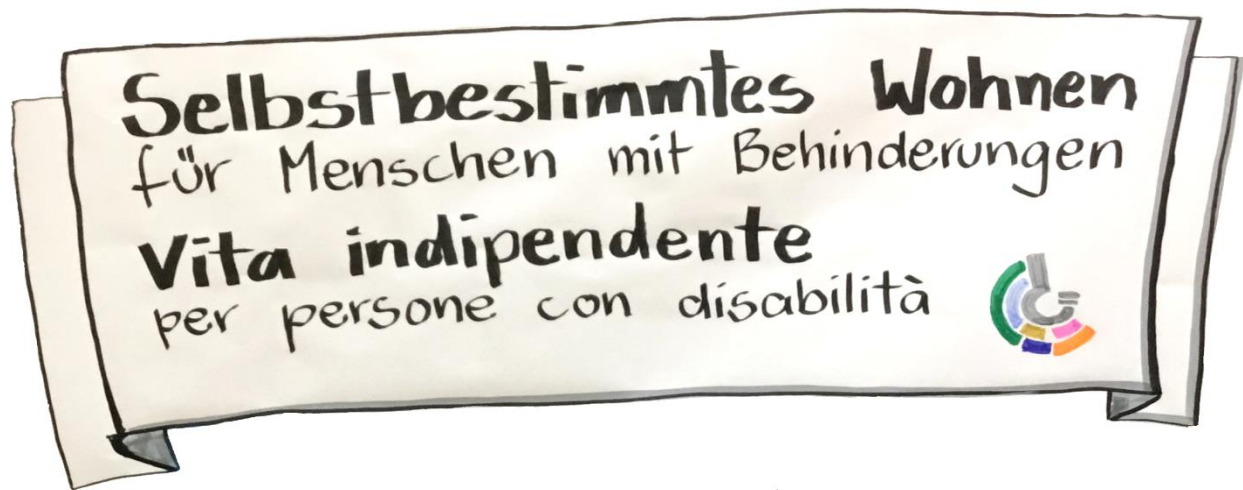 Selbstbestimmtes Wohnen
für Menschen mit Behinderungen
Vita indipendente
per persone con disabilità